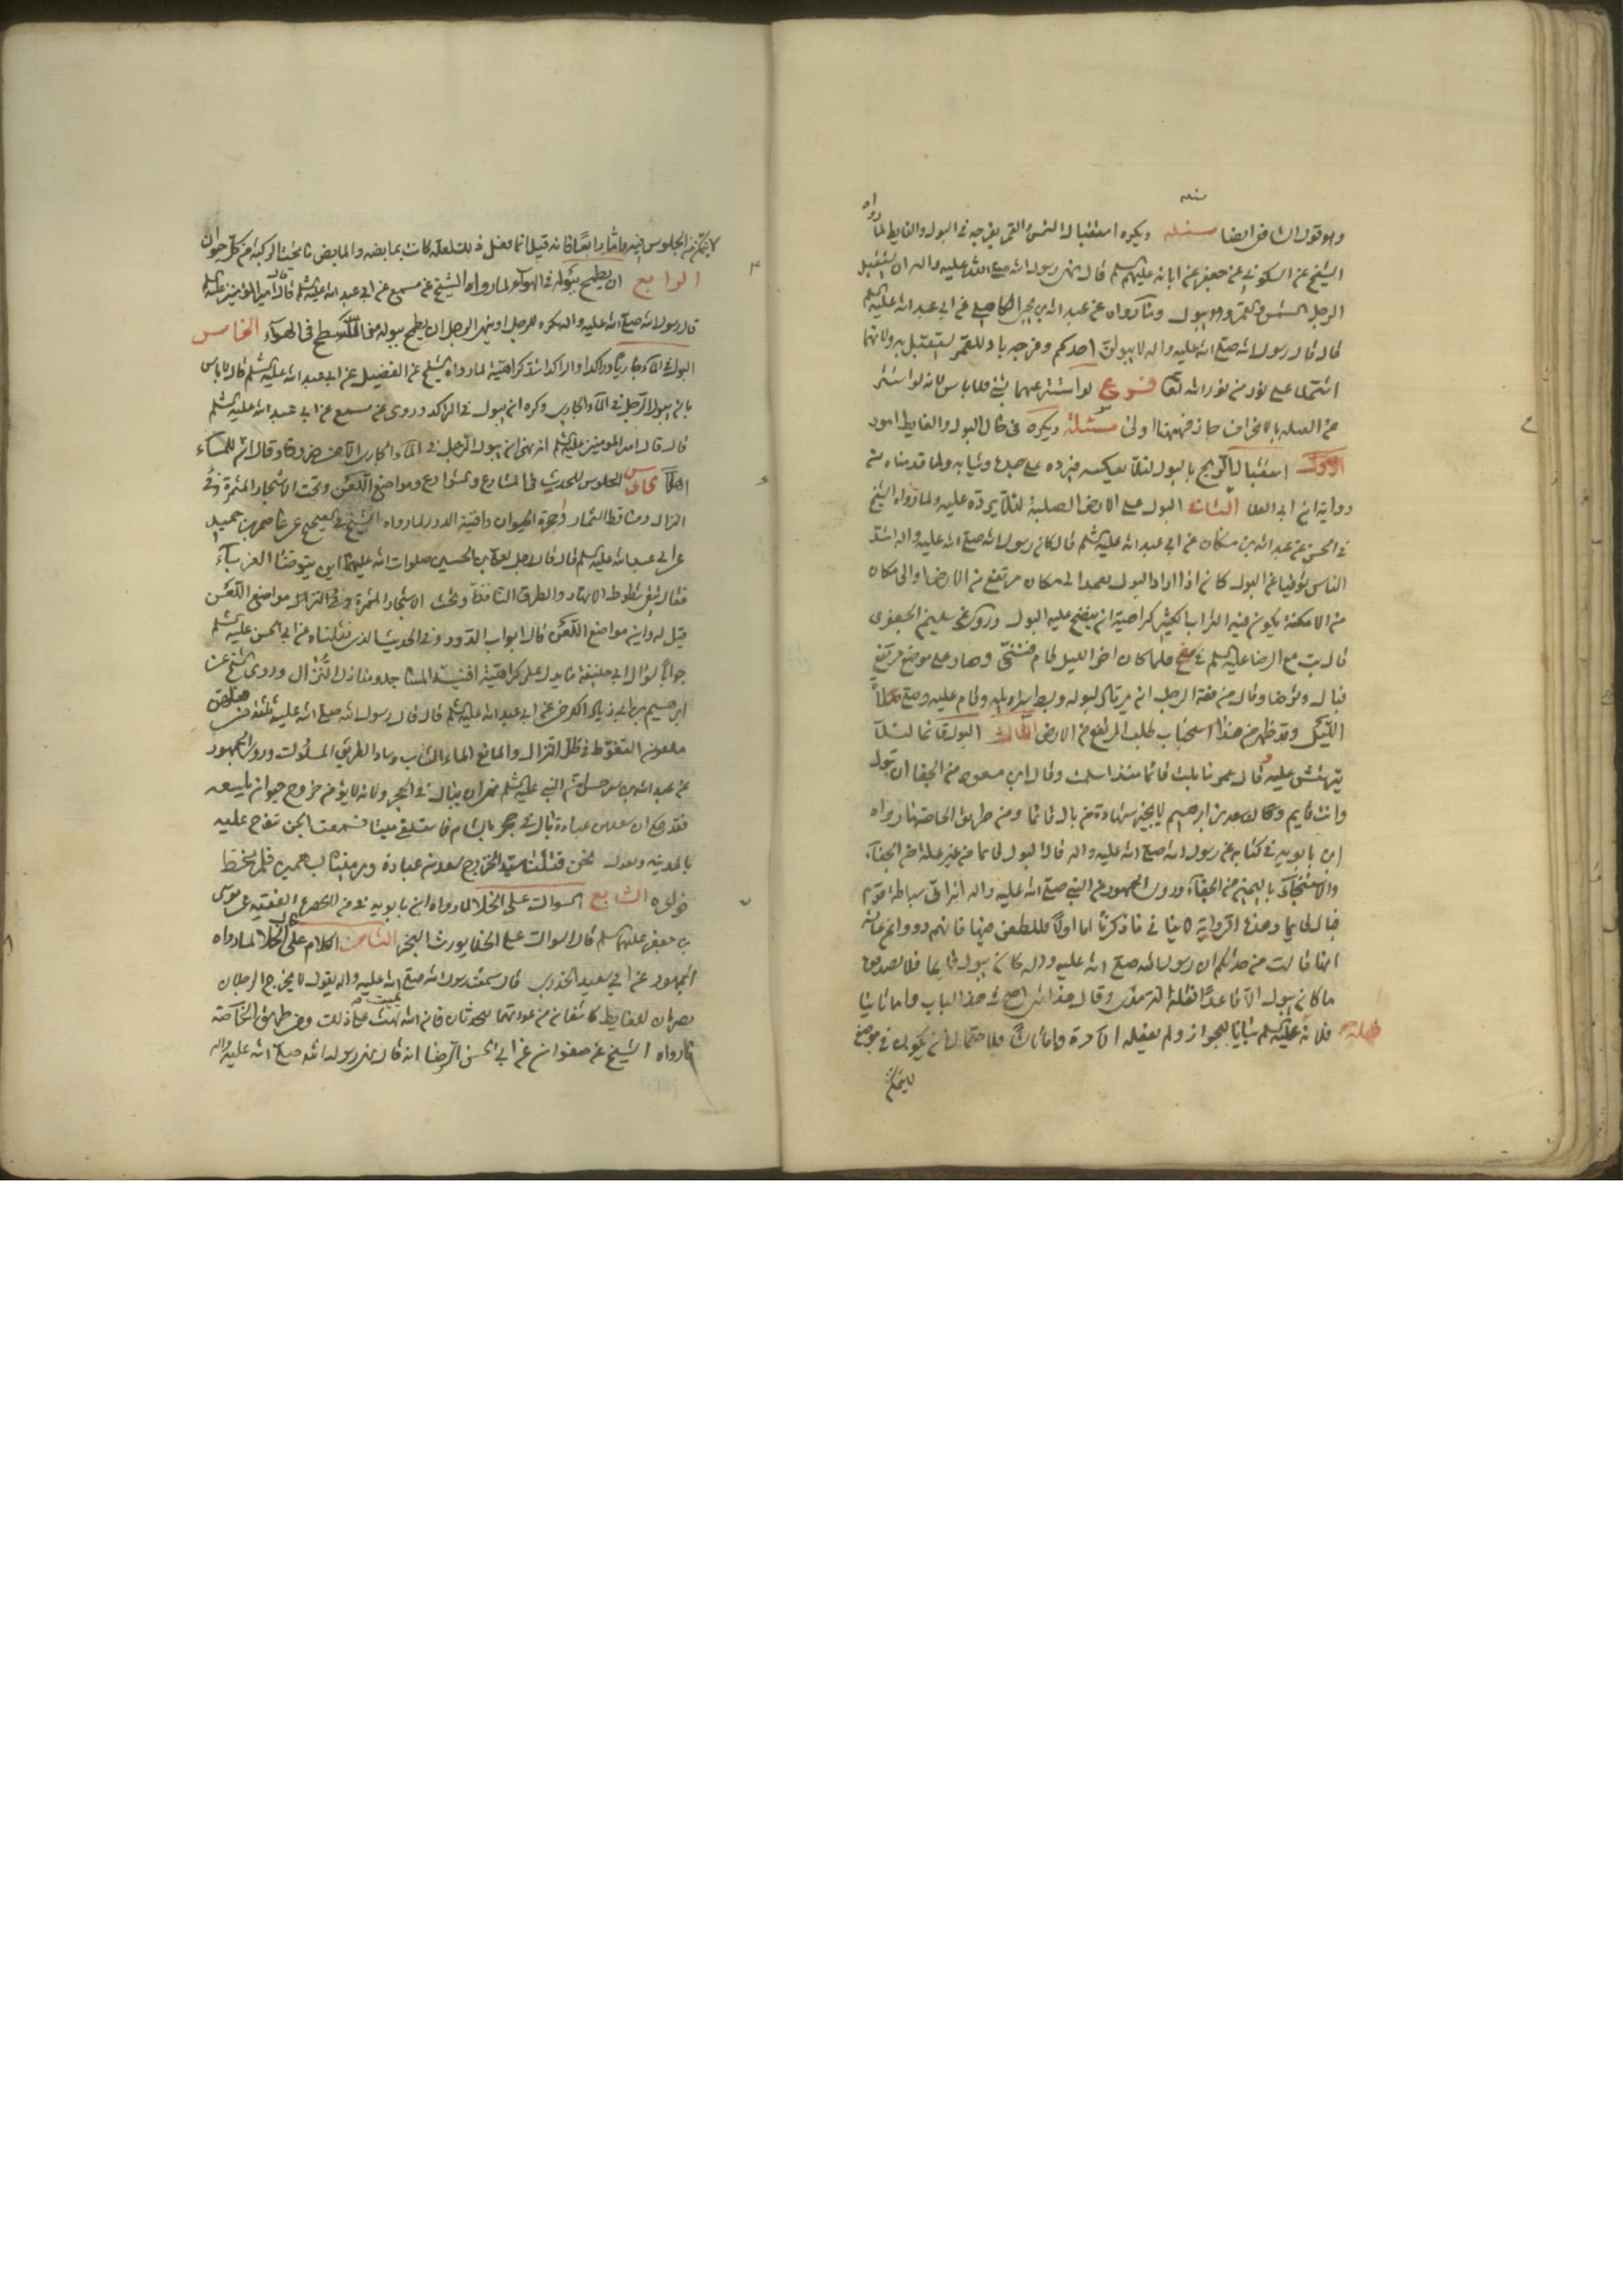 وهو قول الشافعي ايضا مسئلة ويكره استقبال الشمس والقمر بفرجه في البول والغايط لما رواه
الشيخ عن السكوني عن جعفر عن ابائه عليهم السلم قال نهى رسول الله صلى الله عليه واله ان يستقبل
الرجل الشمس والقمر وهو يبول وما رواه عن عبد الله بن يحيى الكاهلي عن ابي عبد الله عليه السلم
قال قال رسول الله صلى الله عليه واله لا يبولن احدكم وفرجه باد للقمر يستقبل به ولانهما
اشتملا على نور من نور الله تعا فروع لو استتر عنهما بشئ فلا باس لانه لو استتر
عن القبلة بالانحراف جاز فههنا اولى مسئلة ويكره في حال البول والغايط امور
الاول استقبال الريح بالبول لئلا يعكسه فيرده على جسده وثيابه ولما قدمناه من
رواية ابن ابي العلا الثاني البول على الارض الصلبة لئلا يرده عليه ولما رواه الشيخ
في الحسن عن عبد الله بن مسكان عن ابي عبد الله عليه السلم قال كان رسول الله صلى الله عليه واله اشد
الناس توقيا عن البول كان اذا اراد البول يعمد الى مكان مرتفع من الارض او الى مكان
من الامكنة يكون فيه التراب الكثير كراهية ان ينضح عليه البول وروى عن سليمن الجعفري
قال بت مع الرضا عليه السلم في سفح فلما كان اخر الليل قام فتنحى وصار على موضع مرتفع
فبال وتوضا وقال من فقه الرجل ان يرتاد لبوله وبسط سراويله وقام عليه وصلى صلاة
الليل وقد ظهر من هذا استحباب طلب المرتفع من الارض الثالث البول قائما لئلا
يترشش عليه قال عمر ما بلت قائما منذ اسلمت وقال ابن مسعود من الجفا ان تبول
وانت قايم وكان سعد بن ابرهيم لا يجيز شهادة من بال قائما ومن طريق الخاصة ما رواه
ابن بابويه في كتابه عن رسول الله صلى الله عليه واله قال البول قائما من غير علة من الجفاء
والاستنجاء باليمين من الجفاء وروى الجمهور عن النبي صلى الله عليه واله انه اتى سباطة قوم
فبال قايما وهذه الرواية لا ينافي ما ذكرنا اما اولا فللطعن فيها فانهم رووا عن عايشة
انها قالت من حدثكم ان رسول الله صلى الله عليه واله كان يبول قايما فلا تصدقوه
ما كان يبول الا قاعدا نقله الترمذي وقال هذا اصح شئ في هذا الباب واما ثانيا
فلانه عليه السلم بيانا للجواز ولم يفعله الا مرة واما ثالثا فلاحتمال ان يكون في موضع
لا يتمكن
لا يتمكن من الجلوس فيه واما رابعا فانه قيل انما فعل ذلك لعلة كانت بمابضه والمابض ما تحت الركبة من كل حيوان
الرابع ان يطمح ببوله في الهواء لما رواه الشيخ عن مسمع عن ابي عبد الله عليه السلم قال قال امير المؤمنين عليه السلم
قال رسول الله صلى الله عليه واله يكره للرجل او ينهى الرجل ان يطمح ببوله من السطح في الهواء الخامس
البول في الماء جاريا وراكدا والراكد اشد كراهية لما رواه الشيخ عن الفضيل عن ابي عبد الله عليه السلم قال لا باس
بان يبول الرجل في الماء الجاري وكره ان يبول في الراكد وروى عن مسمع عن ابي عبد الله عليه السلم
قال قال امير المؤمنين عليه السلم انه نهى ان يبول الرجل في الماء الجاري الا من ضرورة وقال ان للماء
اهلا السادس الجلوس للحدث في المشارع والشوارع ومواضع اللعن وتحت الاشجار المثمرة وفئ
النزال ومساقط الثمار وجحرة الحيوان وافنية الدور لما رواه الشيخ في الصحيح عن عاصم بن حميد
عن ابي عبد الله عليه السلم قال قال رجل لعلي بن الحسين صلوات الله عليهما اين يتوضا الغرباء
فقال يتقي شطوط الانهار والطرق النافذة وتحت الاشجار المثمرة وفئ النزال مواضع اللعن
قيل له واين مواضع اللعن قال ابواب الدور وفي الحديث الذي نقلناه عن ابي الحسن عليه السلم
جوابا لسؤال ابي حنيفة ما يدل على كراهية افنية المساجد ومنازل النزال وروى الشيخ عن
ابرهيم بن ابي زياد الكرخي عن ابي عبد الله عليه السلم قال قال رسول الله صلى الله عليه ثلثة من فعلهن
ملعون المتغوط في ظل النزال والمانع الماء المنتاب وساد الطريق المسلوك وروى الجمهور
عن عبد الله بن سرجس ان النبي عليه السلم نهى ان يبال في الجحر ولانه لا يؤمن خروج حيوان يلسعه
فقد حكي ان سعد بن عبادة بال في جحر بالشام فاستلقى ميتا فسمعت الجن تنوح عليه
بالمدينة وتقول نحن قتلنا سيد الخزرج سعد بن عبادة ورميناه بسهمين فلم نخط
فؤاده السابع السواك على الخلا لما رواه ابن بابويه في من لا يحضره الفقيه عن موسى
بن جعفر عليهما السلم قال السواك على الخلا يورث البخر الثامن الكلام على الخلا لما رواه
الجمهور عن ابي سعيد الخدري قال سمعت رسول الله صلى الله عليه واله يقول لا يخرج الرجلان
يضربان للغايط كاشفان عن عورتهما يتحدثان فان الله يمقت على ذلك ومن طريق الخاصة
ما رواه الشيخ عن صفوان عن ابي الحسن الرضا انه قال نهى رسول الله صلى الله عليه واله